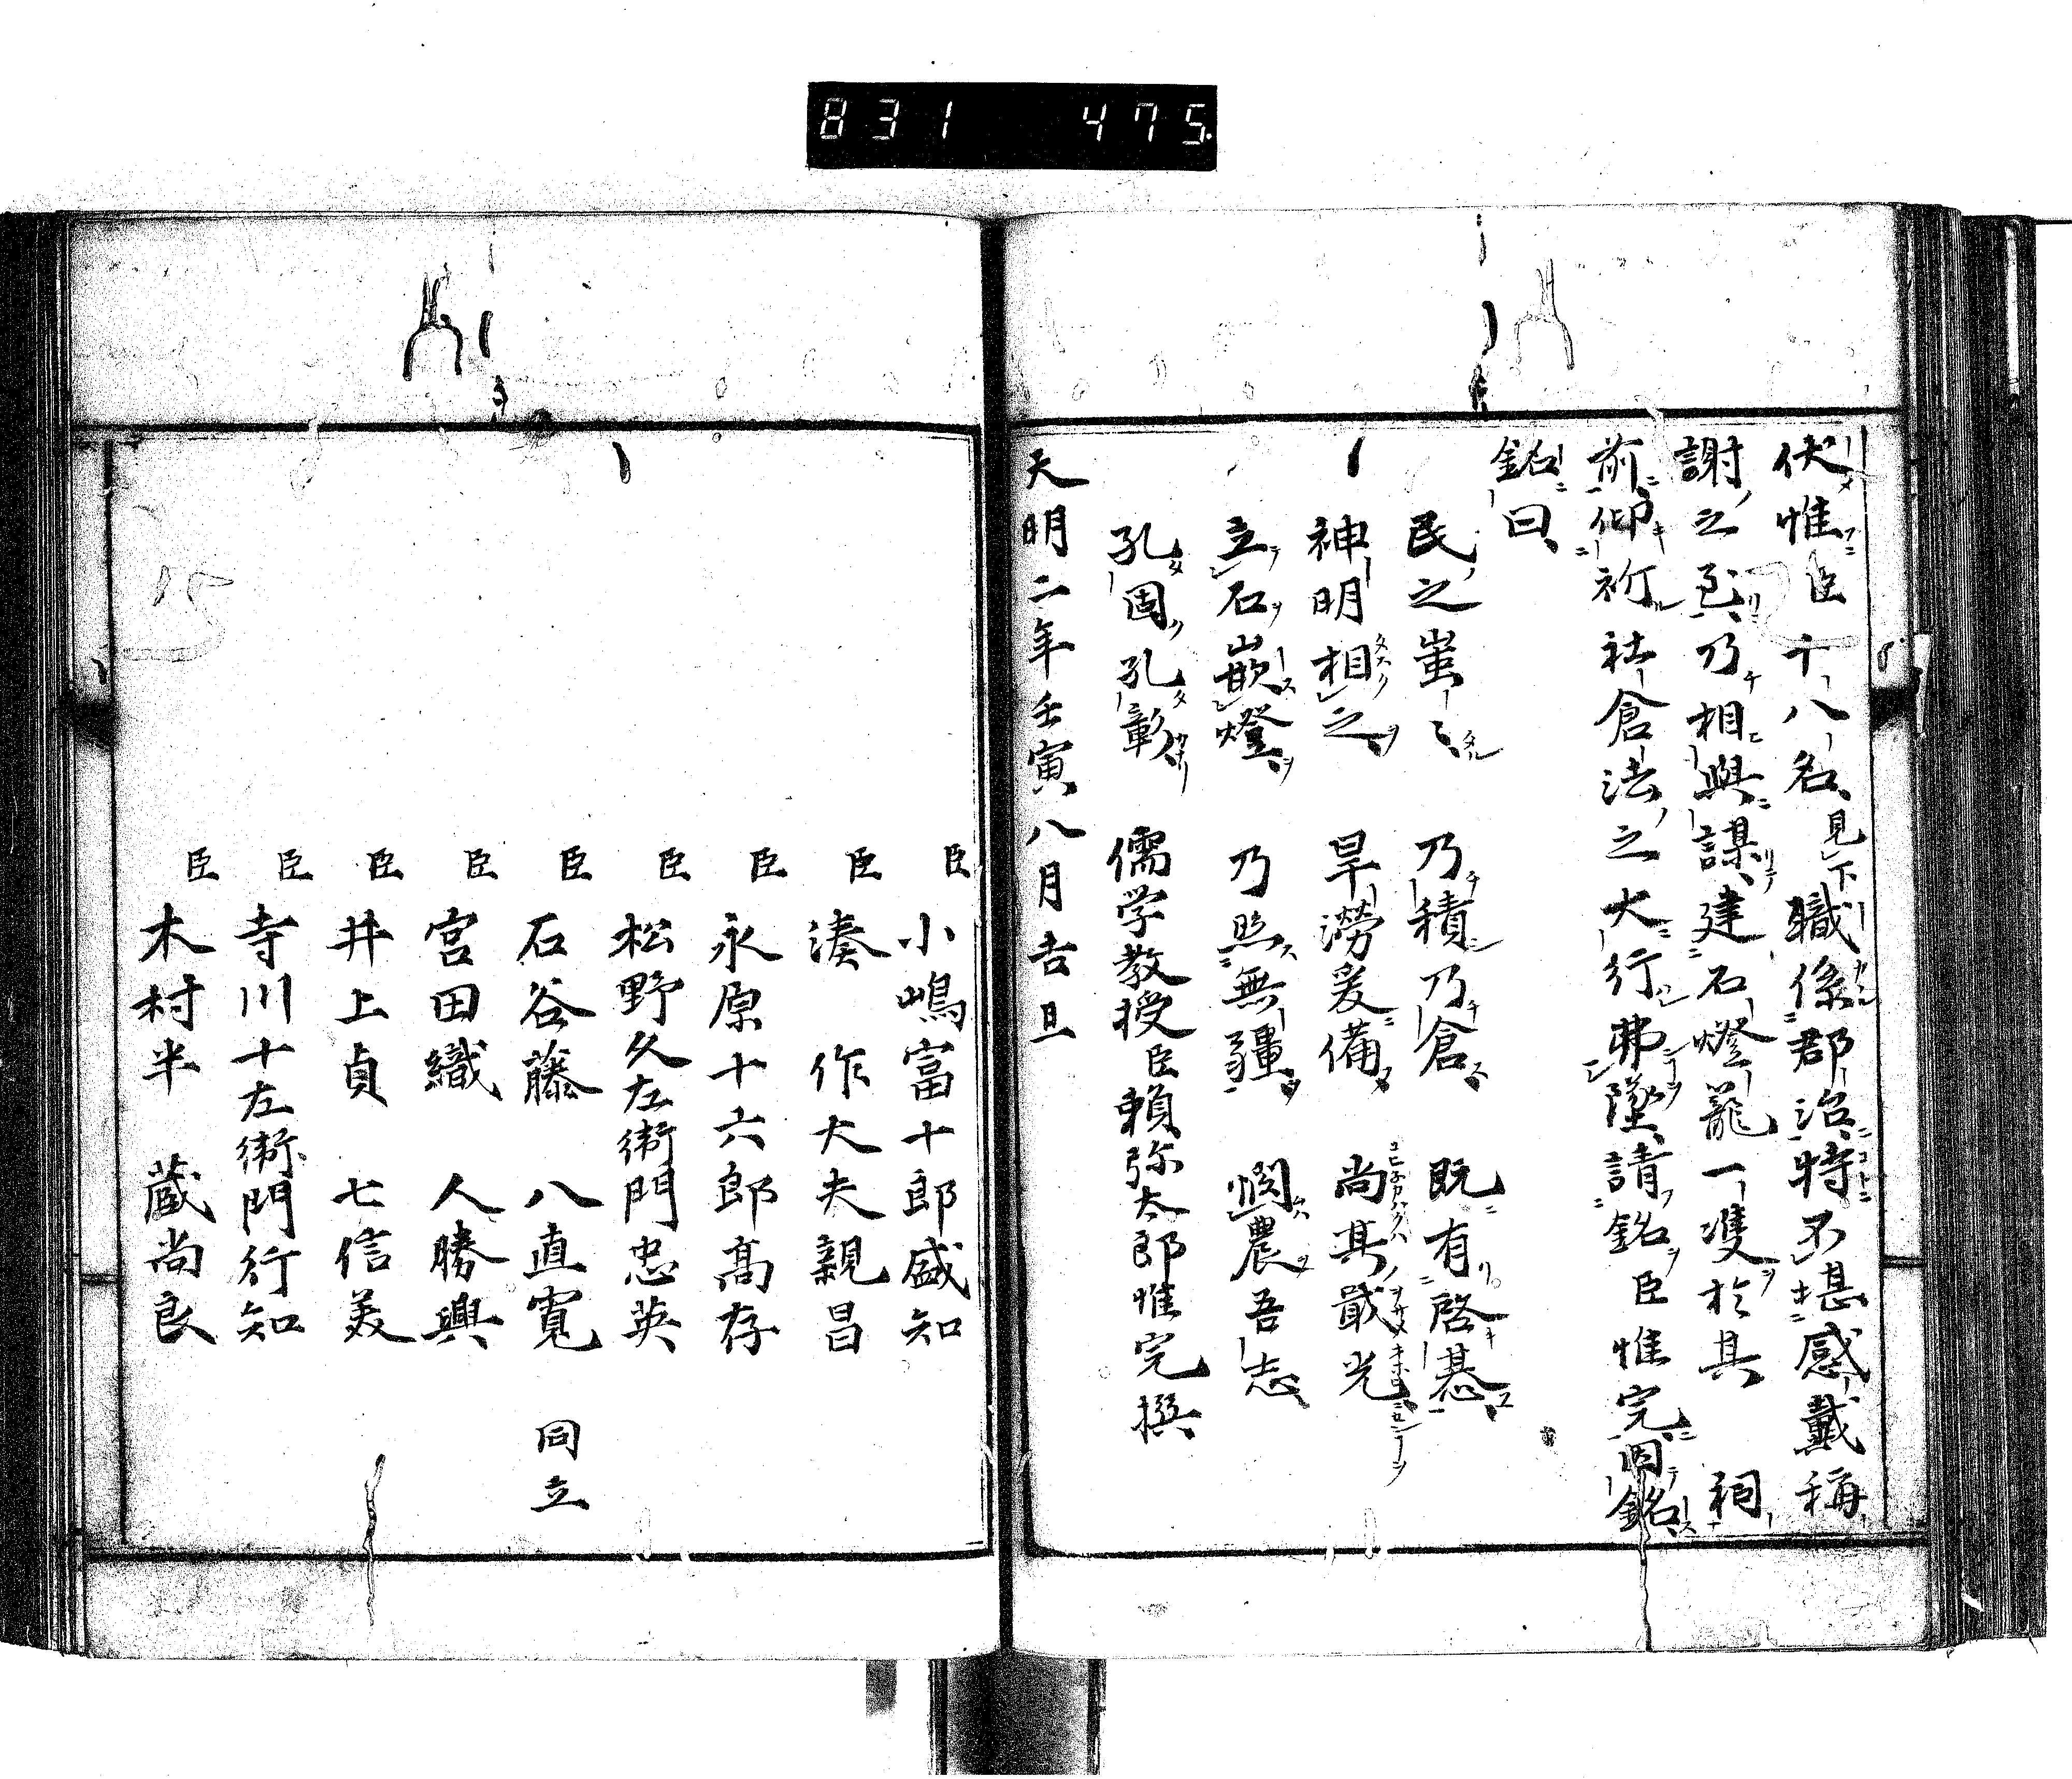 831 475
伏惟臣十八名見下職係郡治特不堪感戴稱
謝之至乃相與謀建石燈籠一隻於其 祠
前仰祈社倉法之大行弗墜請銘臣惟完因銘
銘曰
民之蚩々 乃積乃倉 既有啓碁
神明相之 旱澇爰備 尚其戢光
立石嵌燈 乃照無疆 憫農吾志
孔固孔彰 儒学教授臣頼弥太郎惟完撰
天明二年壬寅八月吉旦
臣 小嶋富十郎盛知
臣 湊 作大夫親昌
臣 永原十六郎高存
臣 松野久左衛門忠英
臣 石谷藤 八直寛 同立
臣 宮田織 人勝興
臣 井上貞 七信美
臣 寺川十左衛門行知
臣 木村半 蔵尚良